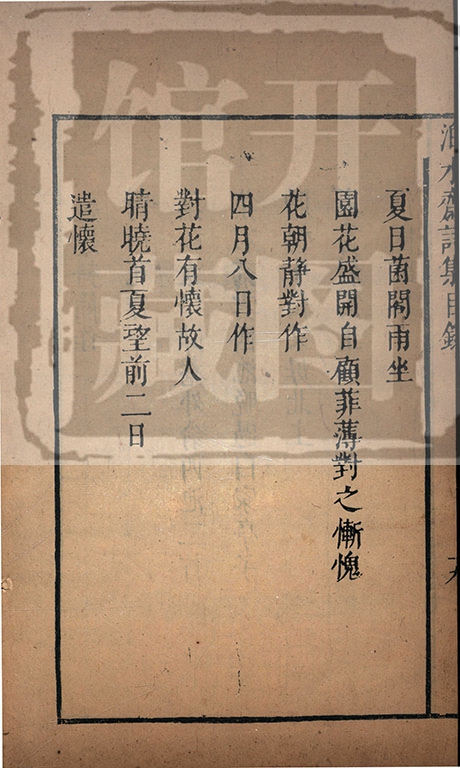 水齋詩集目錄
夏日菌閣雨坐
園花盛開自顧菲薄對之慚愧
花朝靜對作
四月八日作
對花有懷故人
晴曉首夏望前二日
遣懷
开图
馆藏